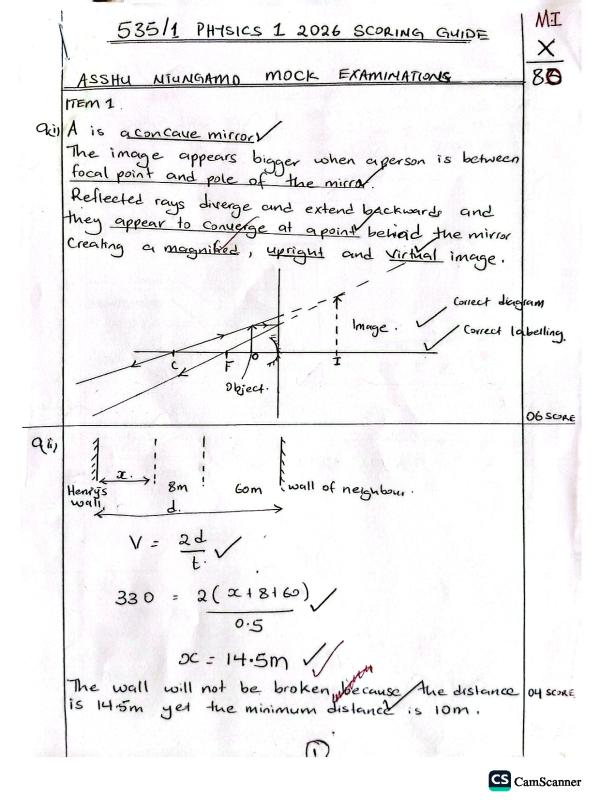 535/1 PHYSICS 1 2026 SCORING GUIDE
MI
X
80
ASSHU NTUNGAMO MOCK EXAMINATIONS
ITEM 1.
a(i) A is a concave mirror
The image appears bigger when a person is between
focal point and pole of the mirror.
Reflected rays diverge and extend backwards and
they appear to converge at a point behind the mirror
Creating a magnified, upright and virtual image.
Correct diagram
Image.
Correct labelling.
C F O I
Object.
06 SCORE
a(ii)
x.
Henry's 8m 60m wall of neighbour.
wall,
d.
V = 2d
t.
330 = 2(x+8+60)
0.5
x = 14.5m
The wall will not be broken because the distance
04 SCORE
is 14.5m yet the minimum distance is 10m.
(1)
CS CamScanner